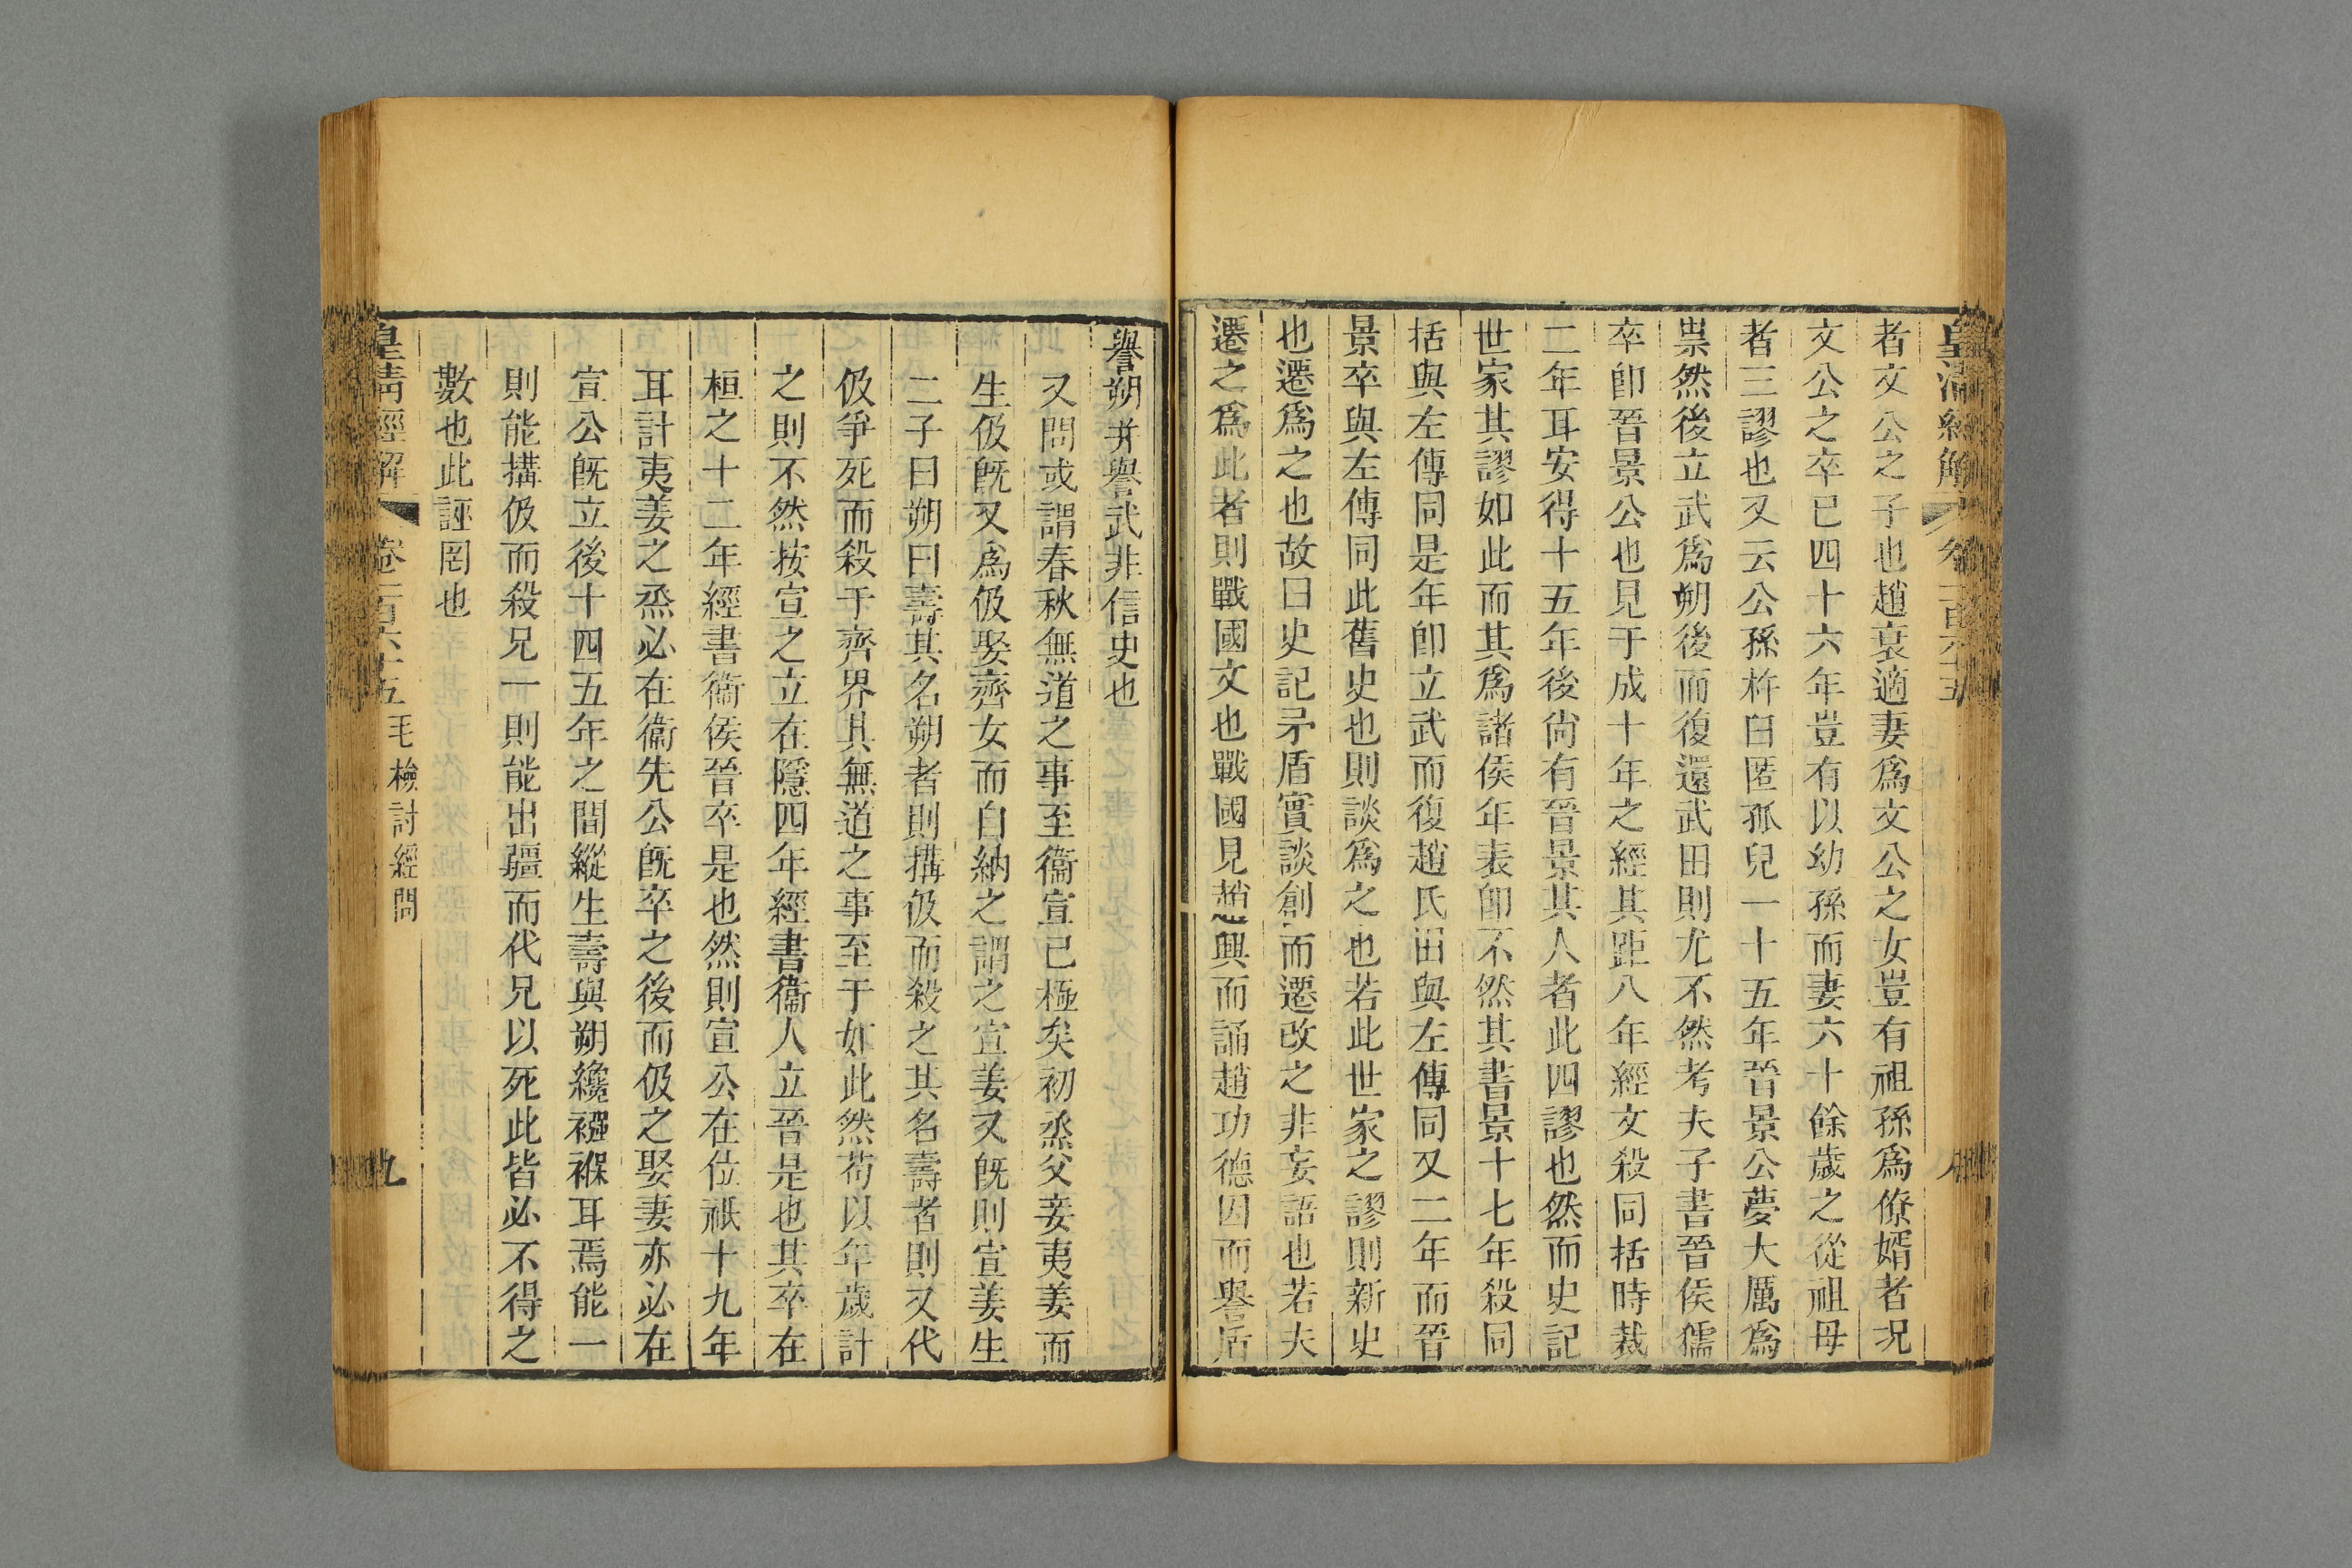 皇清經解 卷一百六十五 八
者文公之子也趙衰適妻爲文公之女豈有祖孫爲僚婿者况
文公之卒已四十六年豈有以幼孫而妻六十餘歲之從祖母
者三謬也又云公孫杵臼匿孤兒一十五年晉景公夢大厲爲
祟然後立武爲朔後而復還武田則尤不然考夫子書晉侯獳
卒卽晉景公也見于成十年之經其距八年經文殺同括時裁
二年耳安得十五年後尙有晉景其人者此四謬也然而史記
世家其謬如此而其爲諸侯年表卽不然其書景十七年殺同
括與左傳同是年卽立武而復趙氏田與左傳同又二年而晉
景卒與左傳同此舊史也則談爲之也若此世家之謬則新史
也遷爲之也故曰史記矛盾實談創而遷改之非妄語也若夫
遷之爲此者則戰國文也戰國見趙興而誦趙功德因而譽盾
譽朔并譽武非信史也
又問或謂春秋無道之事至衞宣已極矣初烝父妾夷姜而
生伋旣又爲伋娶齊女而自納之謂之宣姜又旣則宣姜生
二子曰朔曰壽其名朔者則搆伋而殺之其名壽者則又代
伋爭死而殺于齊界其無道之事至于如此然苟以年歲計
之則不然按宣之立在隱四年經書衞人立晉是也其卒在
桓之十二年經書衞侯晉卒是也然則宣公在位祇十九年
耳計夷姜之烝必在衞先公旣卒之後而伋之娶妻亦必在
宣公旣立後十四五年之間縱生壽與朔纔襁褓耳焉能一
則能搆伋而殺兄一則能出疆而代兄以死此皆必不得之
數也此誣罔也
皇清經解 卷一百六十五 毛檢討經問 九